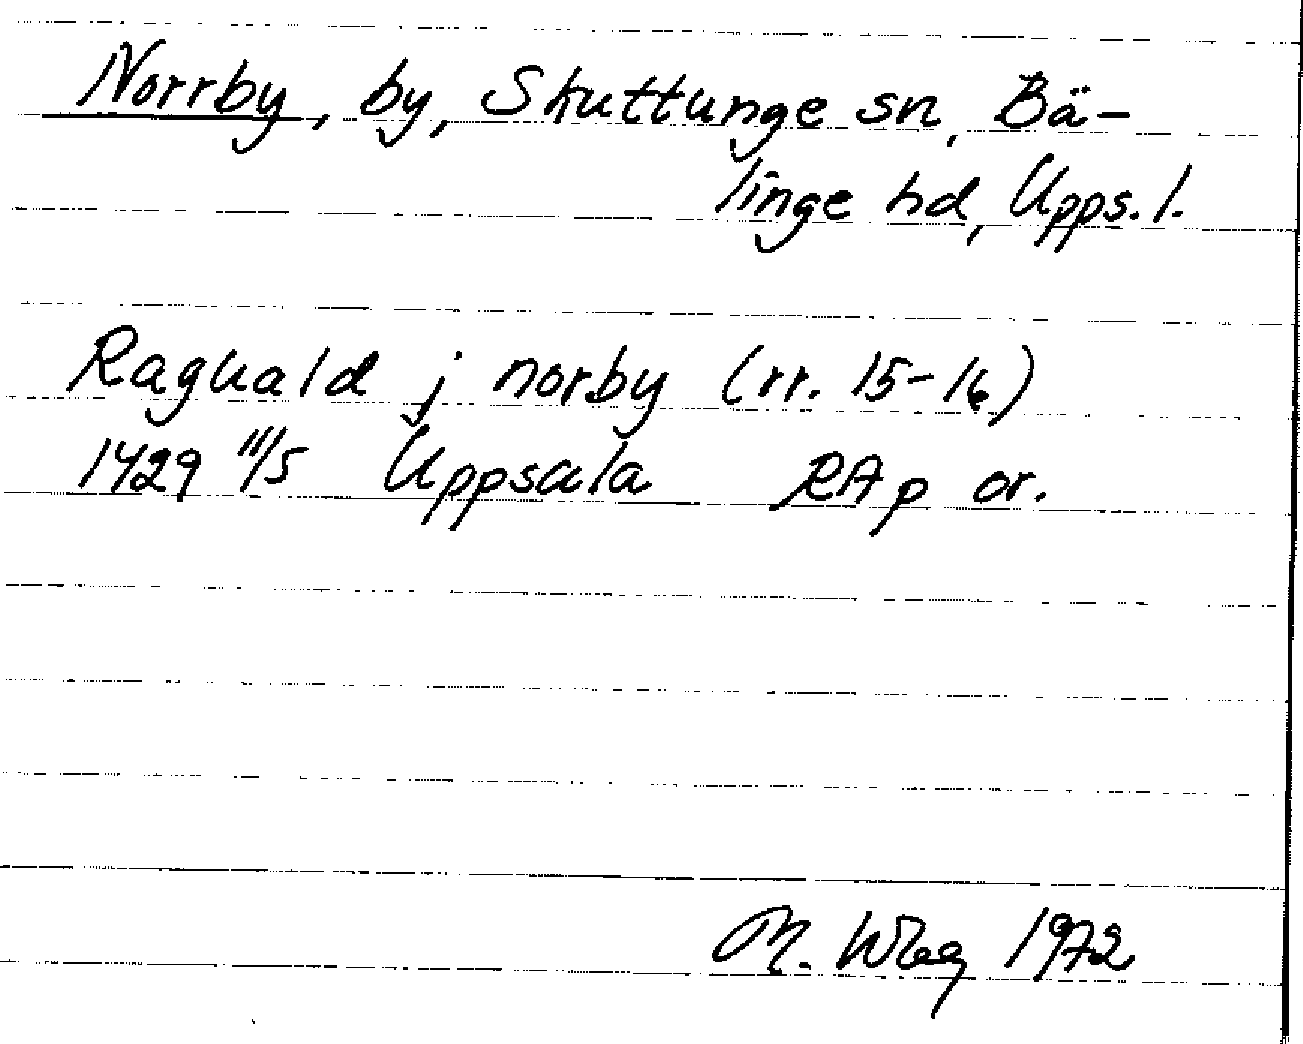 Norrby, by, Skuttunge sn, Bä-
linge hd, Upps. l.
Raguald j norby (rr. 15-16)
1429 11/5 Uppsala RAp or.
M. Wbg 1972